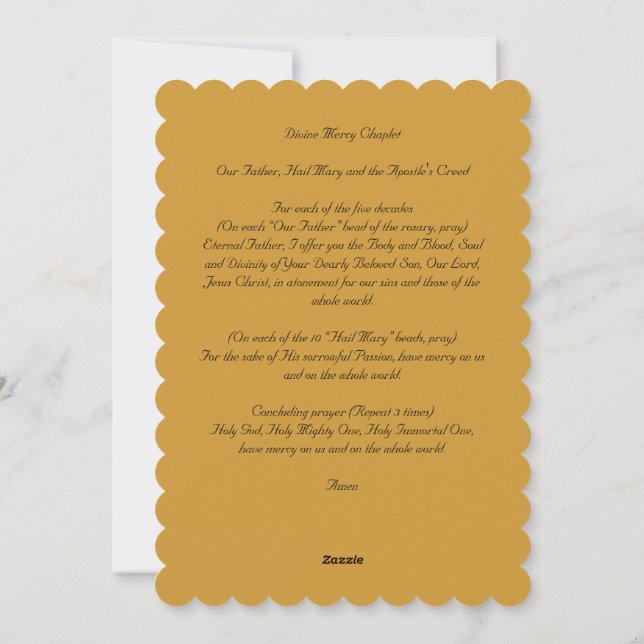 Divine Mercy Chaplet
Our Father, Hail Mary and the Apostle's Creed
For each of the five decades
(On each “Our Father” bead of the rosary, pray)
Eternal Father, I offer you the Body and Blood, Soul
and Divinity of Your Dearly Beloved Son, Our Lord,
Jesus Christ, in atonement for our sins and those of the
whole world.
(On each of the 10 “Hail Mary” beads, pray)
For the sake of His sorrowful Passion, have mercy on us
and on the whole world.
Concluding prayer (Repeat 3 times)
Holy God, Holy Mighty One, Holy Immortal One,
have mercy on us and on the whole world.
Amen
Zazzle